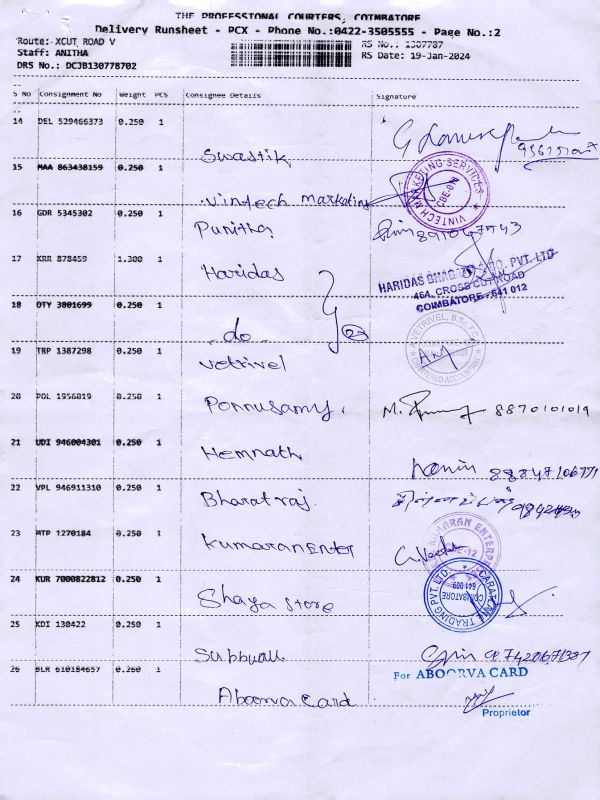 THE PROFESSIONAL COURIERS, COIMBATORE
Delivery Runsheet - PCX - Phone No.:0422-3505555 - Page No.:2
Route: XCUT ROAD V
RS No.: 1307787
Staff: ANITHA
RS Date: 19-Jan-2024
DRS No.: DCJB130778702
S No Consignment No Weight PCS Consignee Details Signature
14 DEL 529466373 0.250 1
Swastik
15 MAA 863438159 0.250 1
Vintech Marketing
VINTECH MARKETING SERVICES CBE-012
16 GDR 5345302 0.250 1
Punitha
17 KRR 878459 1.300 1
Haridas
HARIDAS BHAG CO. PVT. LTD
46A, CROSS CUT ROAD
COIMBATORE - 641 012
18 DTY 3801699 0.250 1
do
2
VETRIVEL, B.S., F.C.A.
CHARTERED ACCOUNTANT
19 TRP 1387298 0.250 1
Vetrivel
20 POL 1956019 0.250 1
Ponnusamy, 8870101019
21 UDI 946004301 0.250 1
Hemnath
22 VPL 946911310 0.250 1
Bharatraj
23 MTP 1270184 0.250 1
Kumaran Enter
KUMARAN ENTERP
24 KUR 7000822812 0.250 1
Shaya store
CARATLANE TRADING PVT. LTD.
COIMBATORE
641 009
25 KDI 130422 0.250 1
Subbuall
26 BLR 610184657 0.260 1
For ABOORVA CARD
Aboorva Card
Proprietor